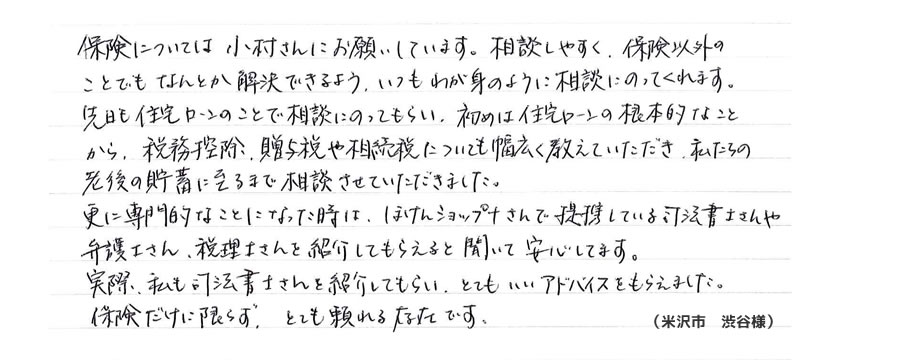 保険については小村さんにお願いしています。相談しやすく、保険以外の
ことでもなんとか解決できるよう、いつもわが身のように相談にのってくれます。
先日も住宅ローンのことで相談にのってもらい、初めは住宅ローンの根本的なこと
から、税務控除、贈与税や相続税についても幅広く教えていただき、私たちの
老後の貯蓄に至るまで相談させていただきました。
更に専門的なことになった時は、ほけんショップナさんで提携している司法書士さんや
弁護士さん、税理士さんを紹介してもらえると聞いて安心してます。
実際、私も司法書士さんを紹介してもらい、とてもいいアドバイスをもらえました。
保険だけに限らず、とても頼れる存在です。
（米沢市　渋谷様）